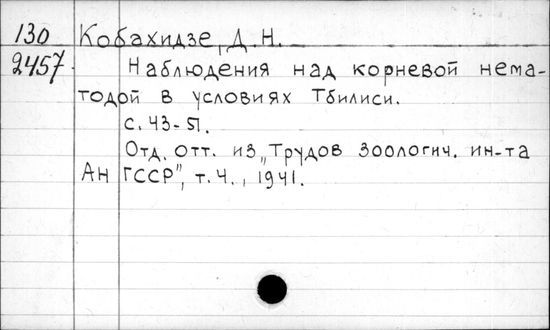 130 Кобахидзе, Д. Н.
2457 Наблюдения над корневой нема-
тодой в условиях Тбилиси.
с. 43-51.
Отд. отт. из „Трудов Зоологич. ин-та
АН ГССР", т. 4., 1941.